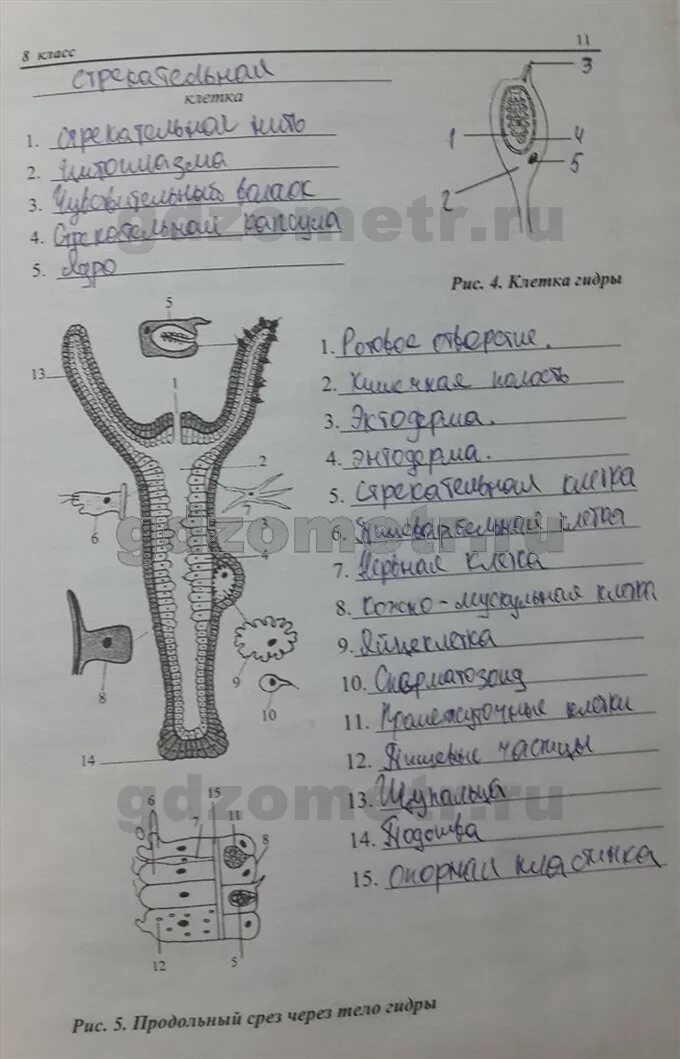 8 класс
11
стрекательная
клетка
1. стрекательная нить
2. цитоплазма
3. Чувствительный волосок
4. Стрекательная капсула
5. Ядро
3
1
4
5
2
gdzometr.ru
Рис. 4. Клетка гидры
5
13
1
2
6
7
3
4
8
9
10
14
1. Ротовое отверстие.
2. Кишечная полость
3. Эктодерма.
4. энтодерма.
5. Стрекательная клетка
6. Пищеварительная клетка
gdzometr.ru
7. Нервная клетка
8. Кожно-мускульная клетка
9. Яйцеклетка
10. Сперматозоид
11. Промежуточные клетки
12. Пищевые частицы
13. Щупальца
gdzometr.ru
14. Подошва
15. опорная пластинка
6
15
7
11
8
12
5
Рис. 5. Продольный срез через тело гидры